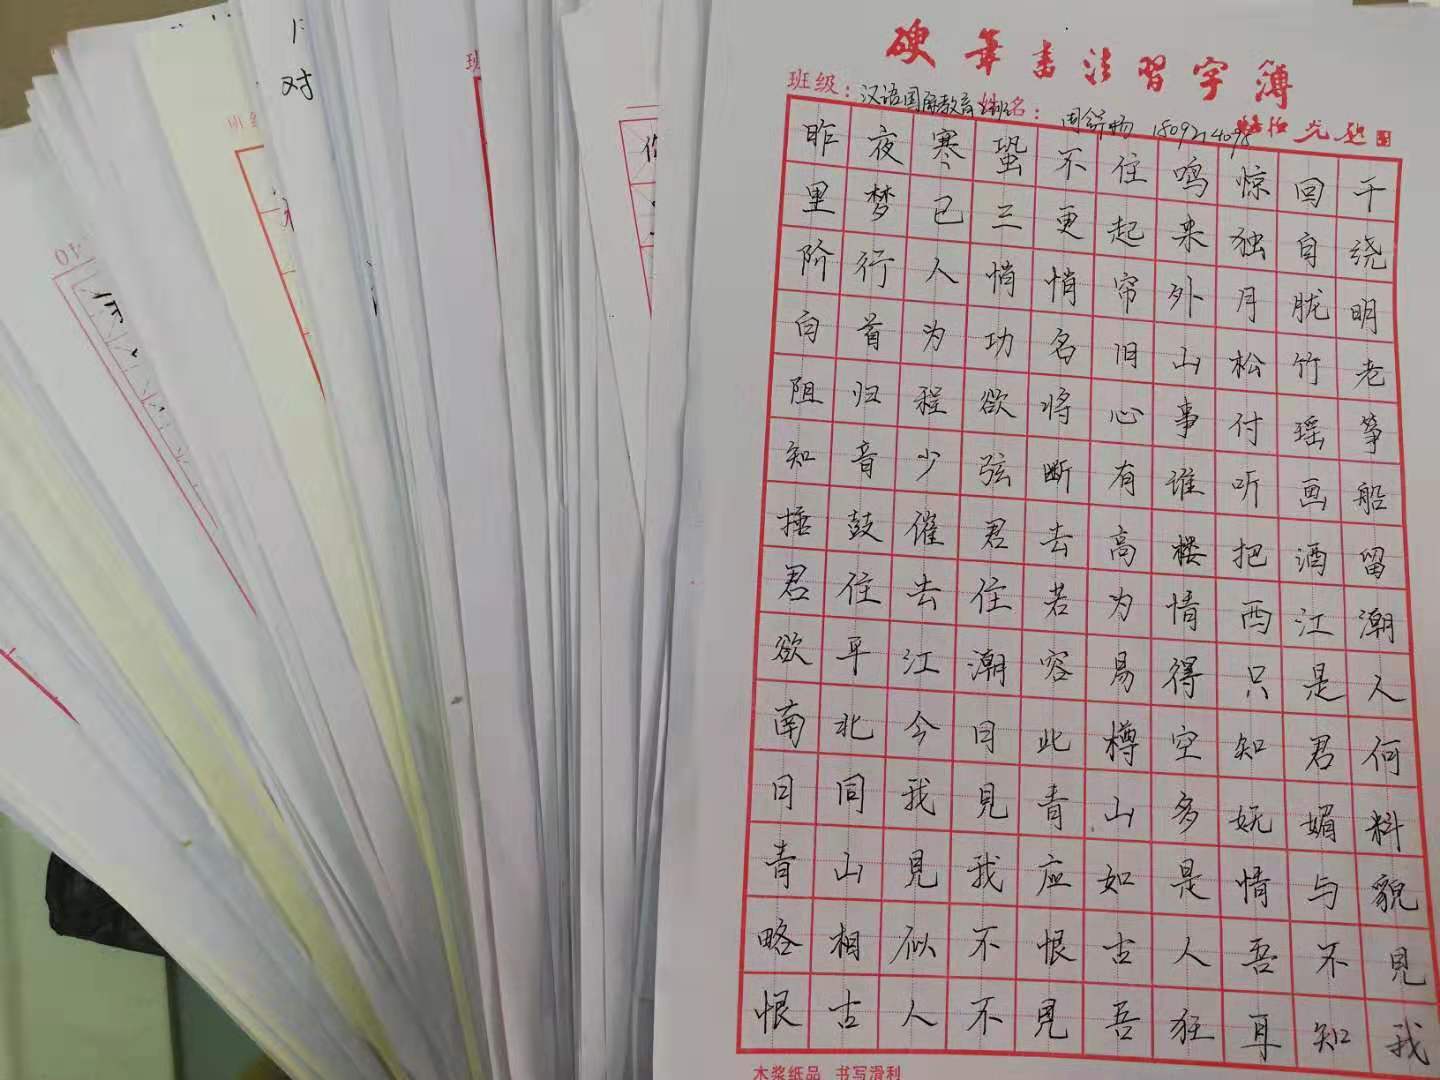 硬筆書法習字簿
班级：汉语国际教育 姓名：
昨夜寒蛩不住鸣惊回千
里梦已三更起来独自绕
阶行人悄悄帘外月胧明
白首为功名旧山松竹老
阻归程欲将心事付瑶筝
知音少弦断有谁听画船
捶鼓催君去高楼把酒留
君住去住若为情西江潮
欲平江潮容易得只是人
南北今日此樽空知君何
日同我见青山多妩媚料
青山见我应如是情与貌
略相似不恨古人吾不见
恨古人不见吾狂耳知我
木浆纸品 书写滑利
对